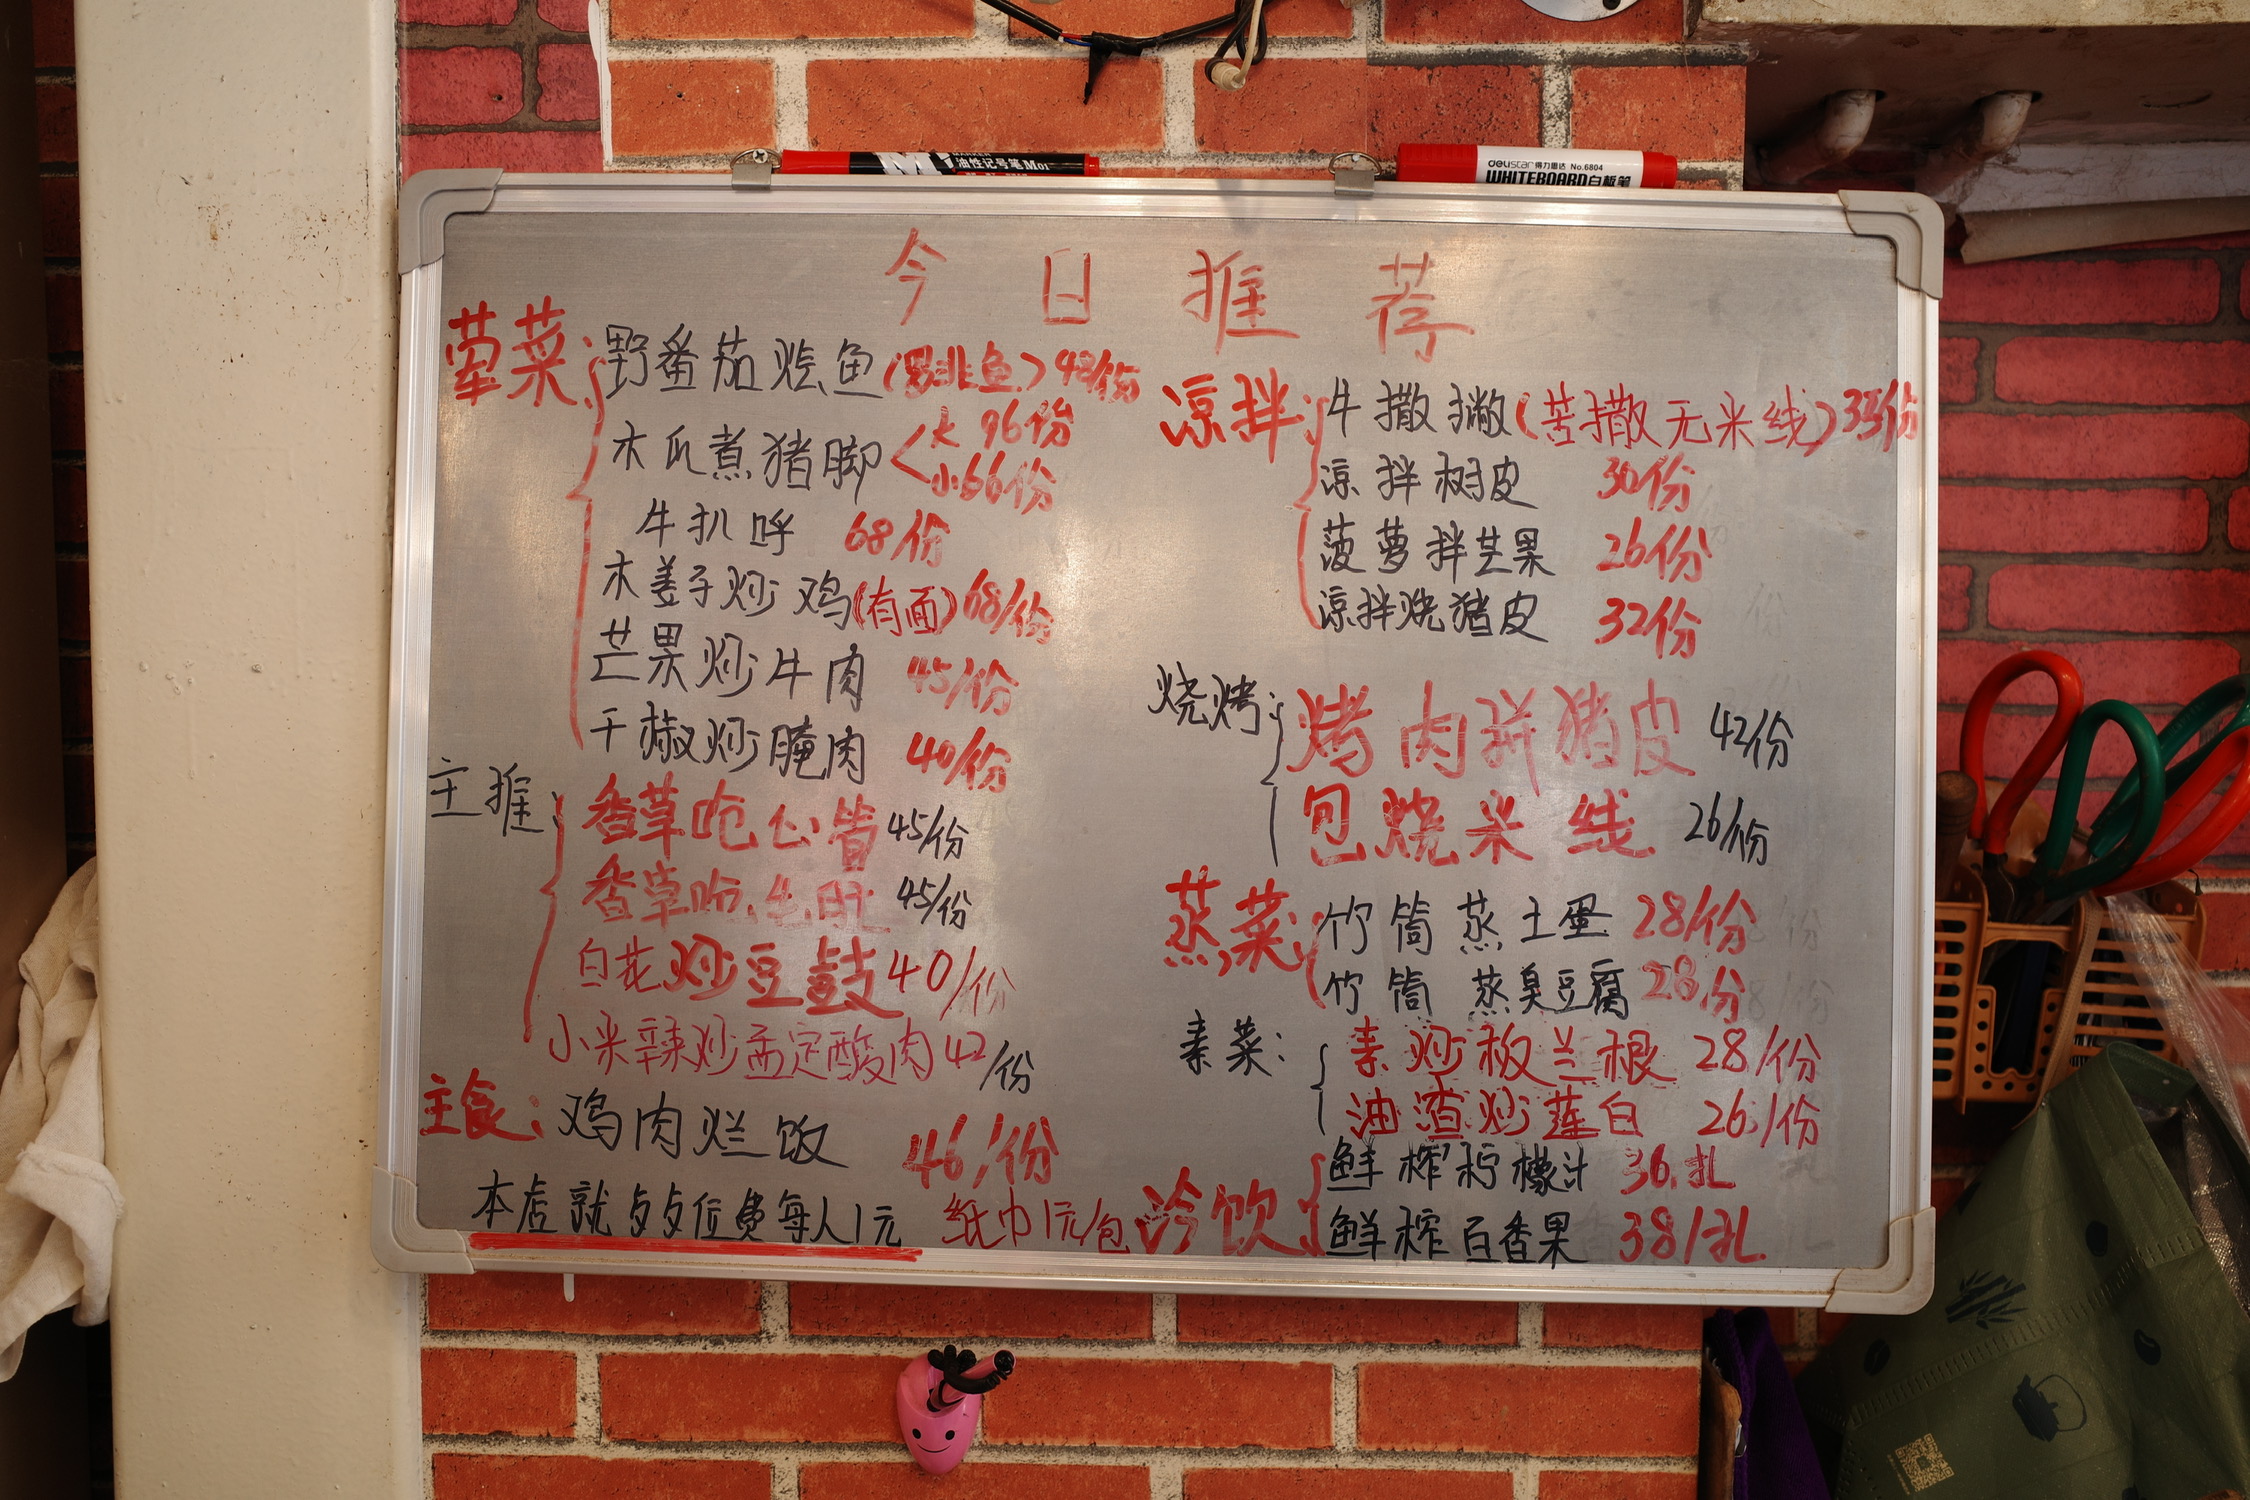 油性记号笔
delistar得力思达 No.6804
WHITEBOARD白板笔
今日推荐
荤菜:
野番茄烩鱼(罗非鱼)48/份
木瓜煮猪脚
大 96份
小66份
牛扒呼 68/份
木姜子炒鸡(有面)68/份
芒果炒牛肉 45/份
干椒炒腌肉 40/份
主推:
香草 45/份
香草 45/份
白花炒豆鼓40/份
小米辣炒孟定酸肉42/份
主食:鸡肉烂饭 46/份
本店就 位费每人1元 纸巾1元/包
凉拌:
牛撒撇(苦撒无米线)35/份
凉拌树皮 30份
菠萝拌芒果 26份
凉拌烧猪皮 32份
烧烤:
烤肉拼猪皮 42/份
包烧米线 26/份
蒸菜:
竹筒蒸土蛋 28/份
竹筒蒸臭豆腐 28份
素菜:
素炒板兰根 28/份
油渣炒莲白 26/份
冷饮:
鲜榨柠檬汁 36/扎
鲜榨百香果 38/扎